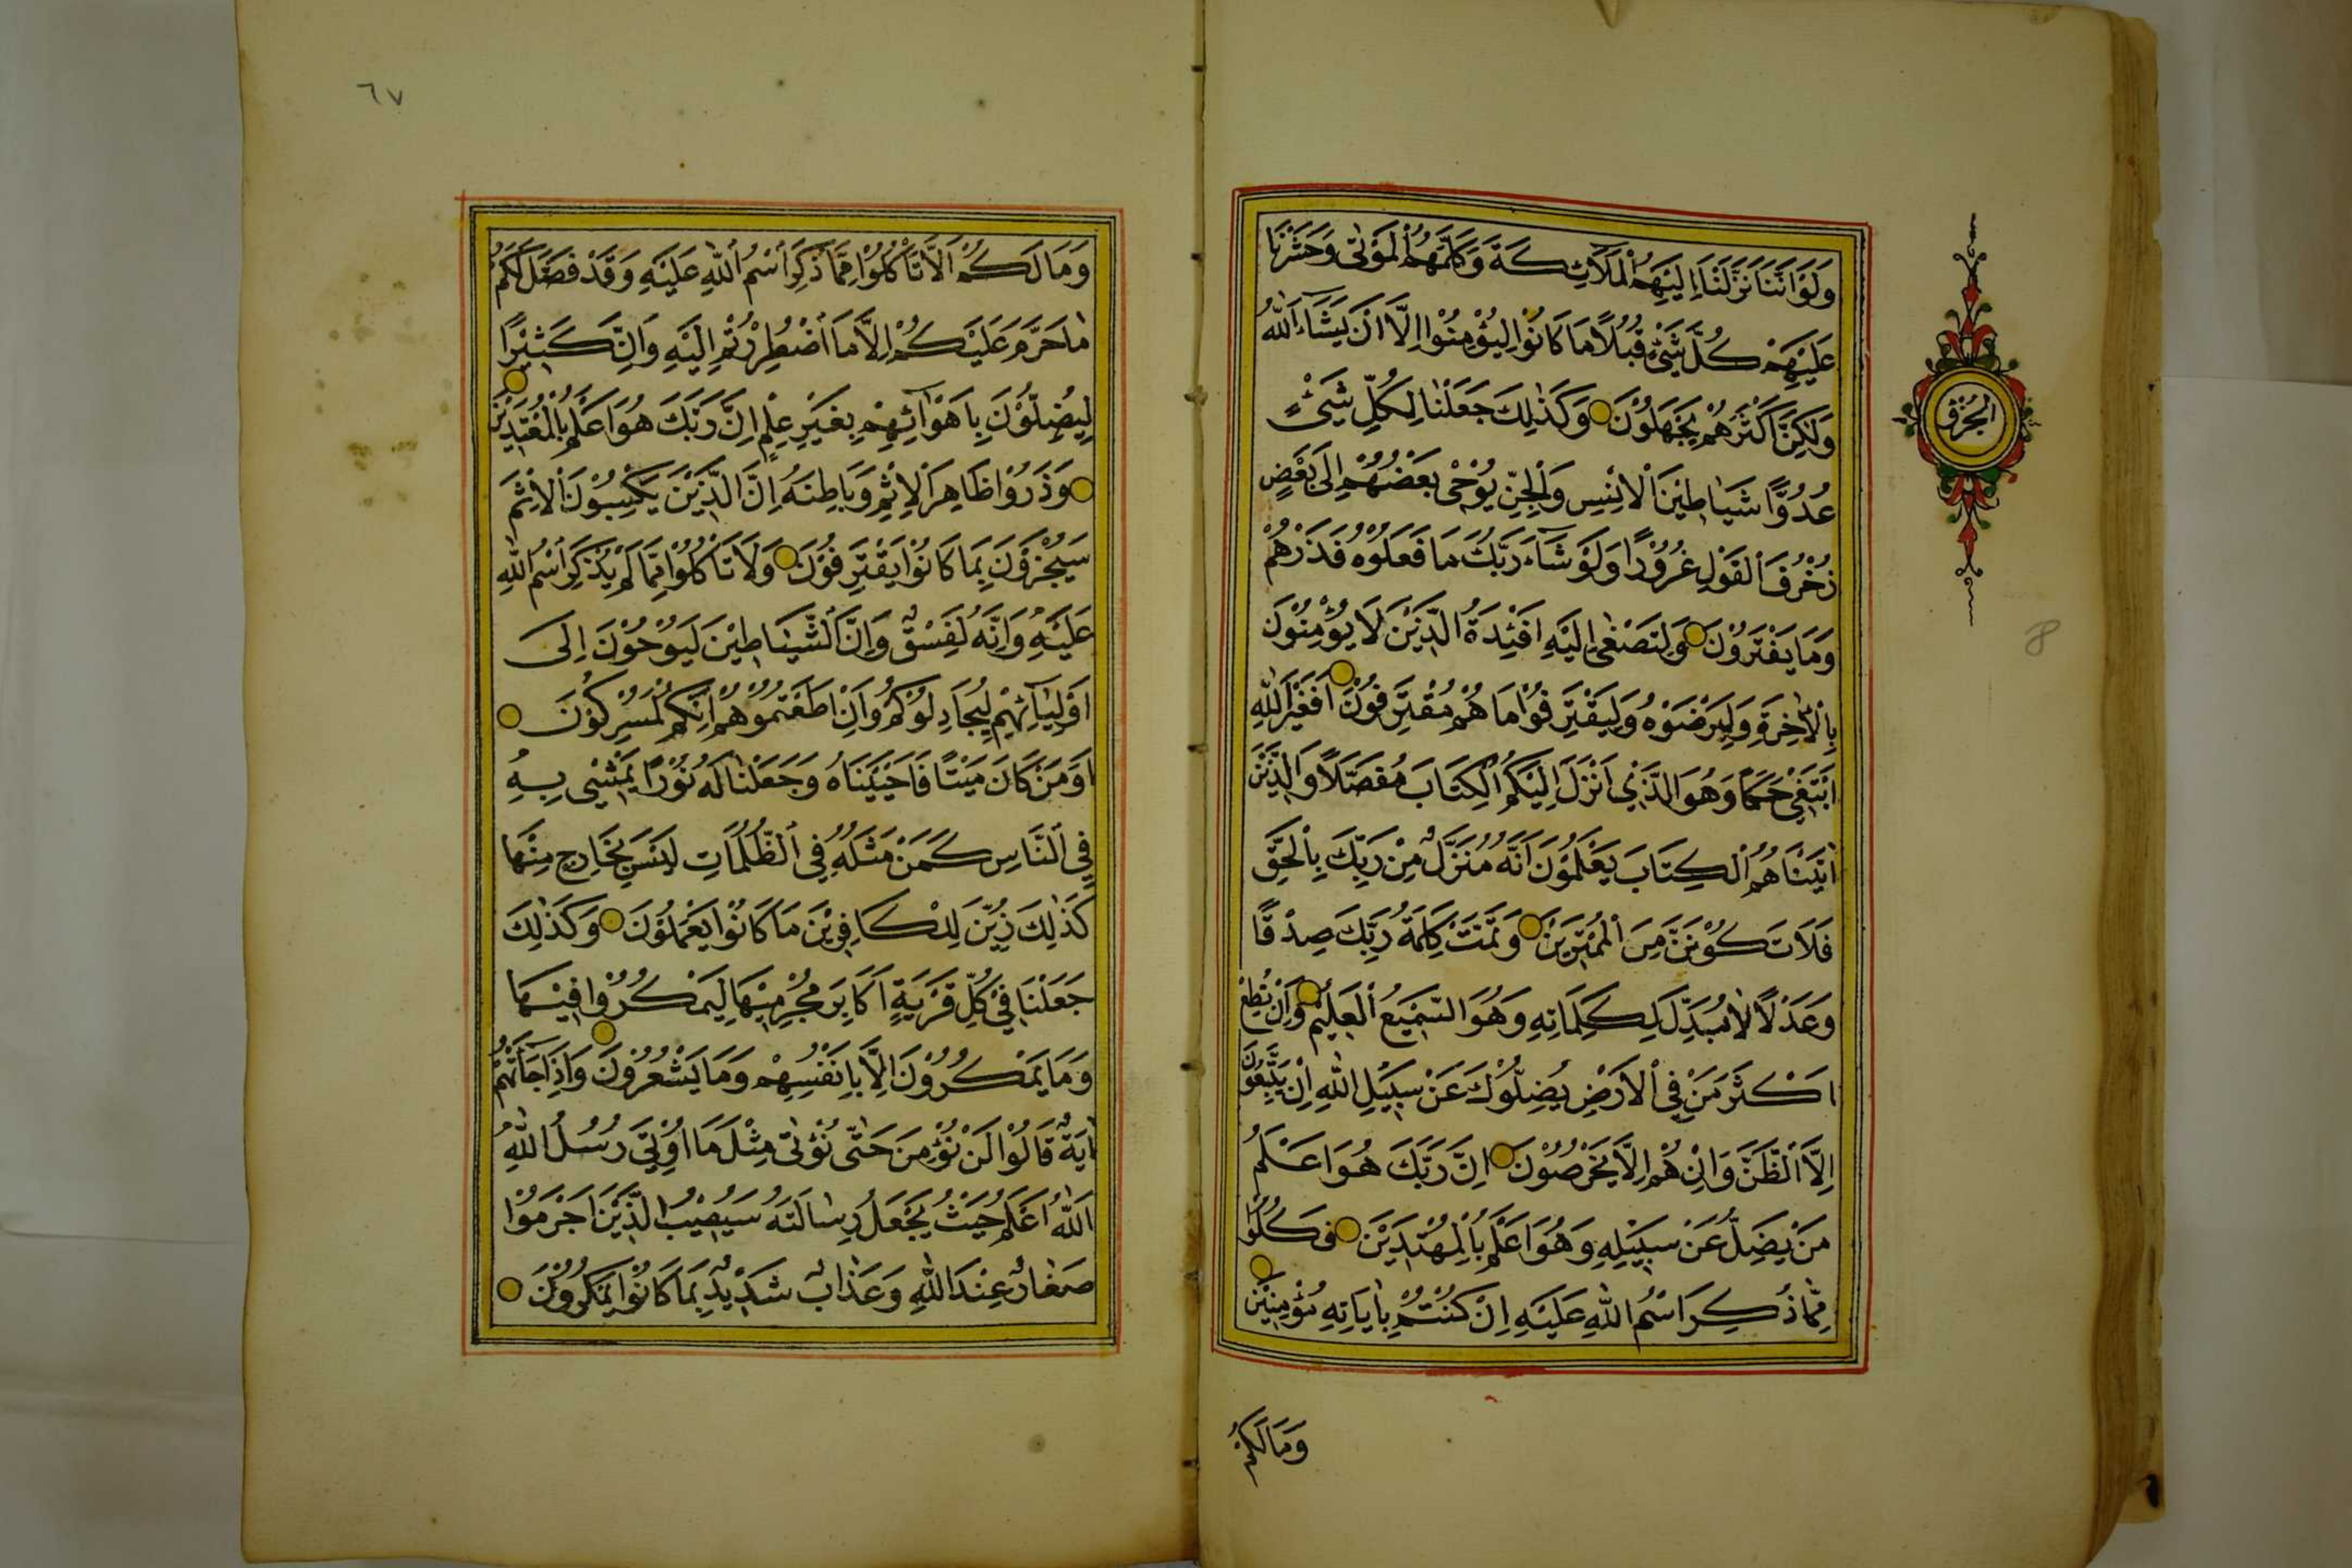 وَلَوْ اَنَّنَا نَزَّلْنَا اِلَيْهِمُ الْمَلَائِكَةَ وَكَلَّمَهُمُ الْمَوْتٰى وَحَشَرْنَا
عَلَيْهِمْ كُلَّ شَيْئٍ قُبُلًا مَا كَانُوْا لِيُؤْمِنُوْا اِلَّا اَنْ يَشَاءَ اللّٰهُ
وَلٰكِنَّ اَكْثَرَهُمْ يَجْهَلُوْنَ وَكَذٰلِكَ جَعَلْنَا لِكُلِّ شَيْئٍ
عُدُوًّا شَيَاطِيْنَ الْاِنْسِ وَالْجِنِّ يُوْحٰى بَعْضُهُمْ اِلٰى بَعْضٍ
زُخْرُفَ الْقَوْلِ غُرُوْرًا وَلَوْ شَاءَ رَبُّكَ مَا فَعَلُوْهُ فَذَرْهُمْ
وَمَا يَفْتَرُوْنَ وَلِتَصْغٰى اِلَيْهِ اَفْئِدَةُ الَّذِيْنَ لَا يُؤْمِنُوْنَ
بِالْاٰخِرَةِ وَلِيَرْضَوْهُ وَلِيَقْتَرِفُوْا مَا هُمْ مُقْتَرِفُوْنَ اَفَغَيْرَ اللّٰهِ
اَبْتَغِيْ حَكَمًا وَهُوَ الَّذِيْ اَنْزَلَ اِلَيْكُمُ الْكِتَابَ مُفَصَّلًا وَالَّذِيْنَ
اٰتَيْنَاهُمُ الْكِتَابَ يَعْلَمُوْنَ اَنَّهُ مُنَزَّلٌ مِنْ رَبِّكَ بِالْحَقِّ
فَلَا تَكُوْنَنَّ مِنَ الْمُمْتَرِيْنَ وَتَمَّتْ كَلِمَةُ رَبِّكَ صِدْقًا
وَعَدْلًا لَا مُبَدِّلَ لِكَلِمَاتِهِ وَهُوَ السَّمِيْعُ الْعَلِيْمُ وَاِنْ تُطِعْ
اَكْثَرَ مَنْ فِى الْاَرْضِ يُضِلُّوْكَ عَنْ سَبِيْلِ اللّٰهِ اِنْ يَتَّبِعُوْنَ
اِلَّا الظَّنَّ وَاِنْ هُمْ اِلَّا يَخْرُصُوْنَ اِنَّ رَبَّكَ هُوَ اَعْلَمُ
مَنْ يَضِلُّ عَنْ سَبِيْلِهِ وَهُوَ اَعْلَمُ بِالْمُهْتَدِيْنَ فَكُلُوْا
مِمَّا ذُكِرَ اسْمُ اللّٰهِ عَلَيْهِ اِنْ كُنْتُمْ بِاٰيَاتِهِ مُؤْمِنِيْنَ
وَمَا لَكُمْ
الجزؤ
8
٦٧
وَمَا لَكُمْ اَلَّا تَأْكُلُوْا مِمَّا ذُكِرَ اسْمُ اللّٰهِ عَلَيْهِ وَقَدْ فَصَّلَ لَكُمْ
مَا حَرَّمَ عَلَيْكُمْ اِلَّا مَا اضْطُرِرْتُمْ اِلَيْهِ وَاِنَّ كَثِيْرًا
لَيُضِلُّوْنَ بِاَهْوَائِهِمْ بِغَيْرِ عِلْمٍ اِنَّ رَبَّكَ هُوَ اَعْلَمُ بِالْمُعْتَدِيْنَ
وَذَرُوْا ظَاهِرَ الْاِثْمِ وَبَاطِنَهُ اِنَّ الَّذِيْنَ يَكْسِبُوْنَ الْاِثْمَ
سَيُجْزَوْنَ بِمَا كَانُوْا يَقْتَرِفُوْنَ وَلَا تَأْكُلُوْا مِمَّا لَمْ يُذْكَرِ اسْمُ اللّٰهِ
عَلَيْهِ وَاِنَّهُ لَفِسْقٌ وَاِنَّ الشَّيَاطِيْنَ لَيُوْحُوْنَ اِلٰى
اَوْلِيَائِهِمْ لِيُجَادِلُوْكُمْ وَاِنْ اَطَعْتُمُوْهُمْ اِنَّكُمْ لَمُشْرِكُوْنَ
اَوَمَنْ كَانَ مَيْتًا فَاَحْيَيْنَاهُ وَجَعَلْنَا لَهُ نُوْرًا يَمْشِيْ بِهِ
فِي النَّاسِ كَمَنْ مَثَلُهُ فِي الظُّلُمَاتِ لَيْسَ بِخَارِجٍ مِنْهَا
كَذٰلِكَ زُيِّنَ لِلْكَافِرِيْنَ مَا كَانُوْا يَعْمَلُوْنَ وَكَذٰلِكَ
جَعَلْنَا فِيْ كُلِّ قَرْيَةٍ اَكَابِرَ مُجْرِمِيْهَا لِيَمْكُرُوْا فِيْهَا
وَمَا يَمْكُرُوْنَ اِلَّا بِاَنْفُسِهِمْ وَمَا يَشْعُرُوْنَ وَاِذَا جَاءَتْهُمْ
اٰيَةٌ قَالُوْا لَنْ نُؤْمِنَ حَتّٰى نُؤْتٰى مِثْلَ مَا اُوْتِيَ رُسُلُ اللّٰهِ
اَللّٰهُ اَعْلَمُ حَيْثُ يَجْعَلُ رِسَالَتَهُ سَيُصِيْبُ الَّذِيْنَ اَجْرَمُوْا
صَغَارٌ عِنْدَ اللّٰهِ وَعَذَابٌ شَدِيْدٌ بِمَا كَانُوْا يَمْكُرُوْنَ